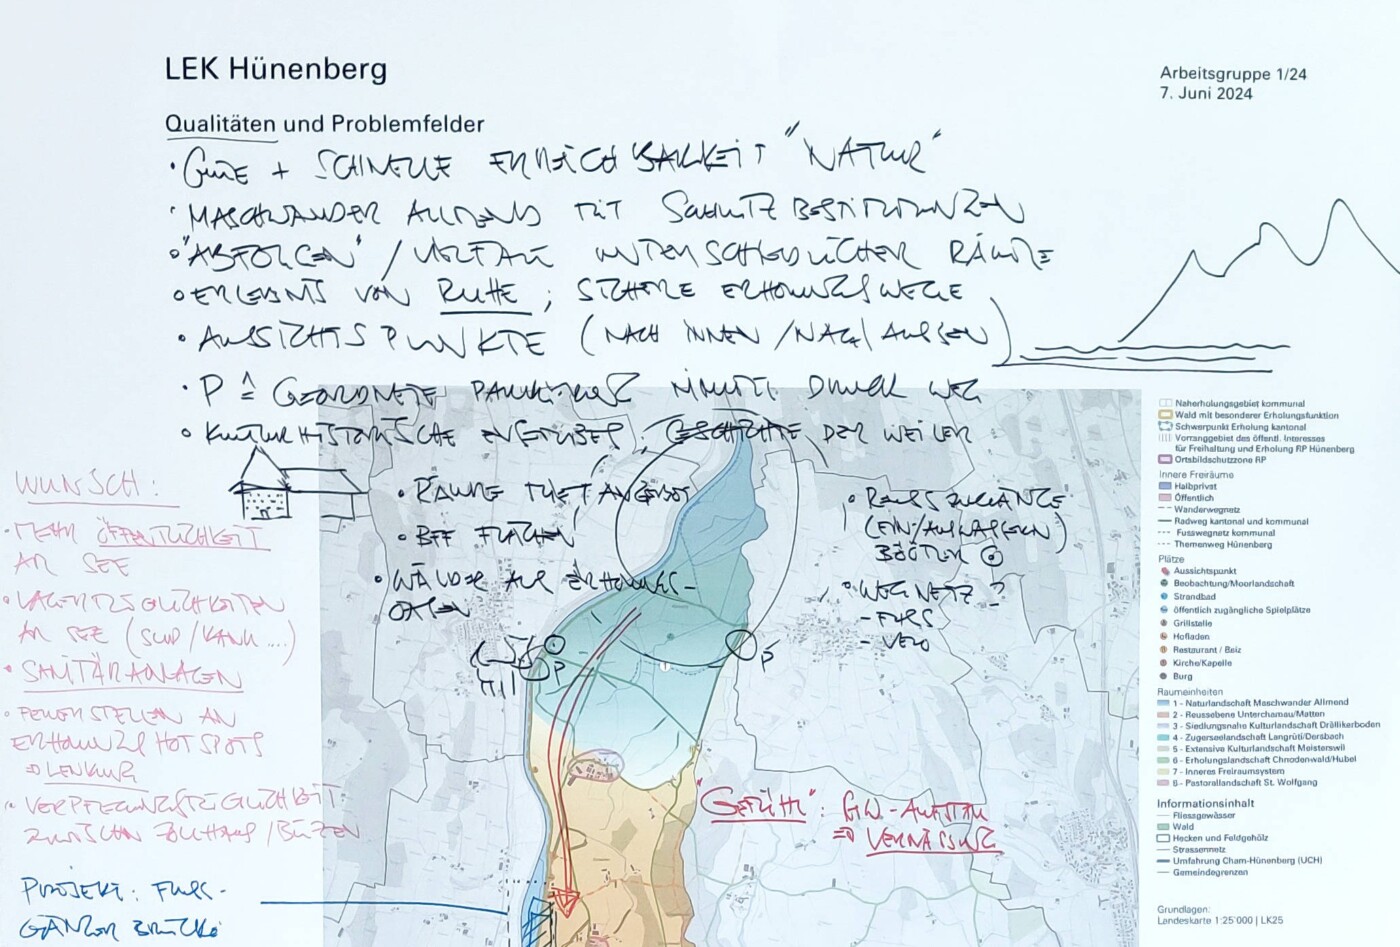 LEK Hünenberg
Arbeitsgruppe 1/24
7. Juni 2024
Qualitäten und Problemfelder
• GUTE + SCHNELLE ERREICHBARKEIT "NATUR"
• MASCHWANDER ALLMEND MIT SCHUTZBESTIMMUNGEN
• "ABFOLGEN" / VIELFALT UNTERSCHIEDLICHER RÄUME
• ERLEBNIS VON RUHE ; SICHERE ERHOLUNGSWEGE
• AUSSICHTSPUNKTE (NACH INNEN / NACH AUSSEN)
• P ≙ GEORDNETE PARKIERUNG NIMMT DRUCK WEG
• KULTURHISTORISCHE GESCHICHTE DER WEILER
• RÄUME MIT ANGEBOT
• BFF FLÄCHEN
• WÄLDER ALS ERHOLUNGS-
OASEN
P
• REUSSZUGÄNGE
(EIN/AUSWASSERN)
BÖÖTLER
• WEGNETZ ?
- FUSS
- VELO
P
WUNSCH:
• MEHR ÖFFENTLICHKEIT
AM SEE
• LAGERMÖGLICHKEITEN
AM SEE (SUP/KANU ....)
• SANITÄRANLAGEN
• FEUERSTELLEN AN
ERHOLUNGS HOTSPOTS
⇒ LENKUNG
• VERPFLEGUNGSMÖGLICHKEIT
ZWISCHEN ZOLLHAUS/BÜTZEN
PROJEKT: FUSS-
GÄNGER BRÜCKE
"GEFÜHL": GW-AUFSTAU
⇒ VERNÄSSUNG
Naherholungsgebiet kommunal
Wald mit besonderer Erholungsfunktion
Schwerpunkt Erholung kantonal
Vorranggebiet des öffentl. Interesses
für Freihaltung und Erholung RP Hünenberg
Ortsbildschutzzone RP
Innere Freiräume
Halbprivat
Öffentlich
Wanderwegnetz
Radweg kantonal und kommunal
Fusswegnetz kommunal
Themenweg Hünenberg
Plätze
Aussichtspunkt
Beobachtung/Moorlandschaft
Strandbad
öffentlich zugängliche Spielplätze
Grillstelle
Hofladen
Restaurant / Beiz
Kirche/Kapelle
Burg
Raumeinheiten
1 - Naturlandschaft Maschwander Allmend
2 - Reussebene Unterchamau/Matten
3 - Siedlungsnahe Kulturlandschaft Drällikerboden
4 - Zugerseelandschaft Langrüti/Dersbach
5 - Extensive Kulturlandschaft Meisterswil
6 - Erholungslandschaft Chnodenwald/Hubel
7 - Inneres Freiraumsystem
8 - Pastorallandschaft St. Wolfgang
Informationsinhalt
Fliessgewässer
Wald
Hecken und Feldgehölz
Strassennetz
Umfahrung Cham-Hünenberg (UCH)
Gemeindegrenzen
Grundlagen:
Landeskarte 1:25'000 | LK25